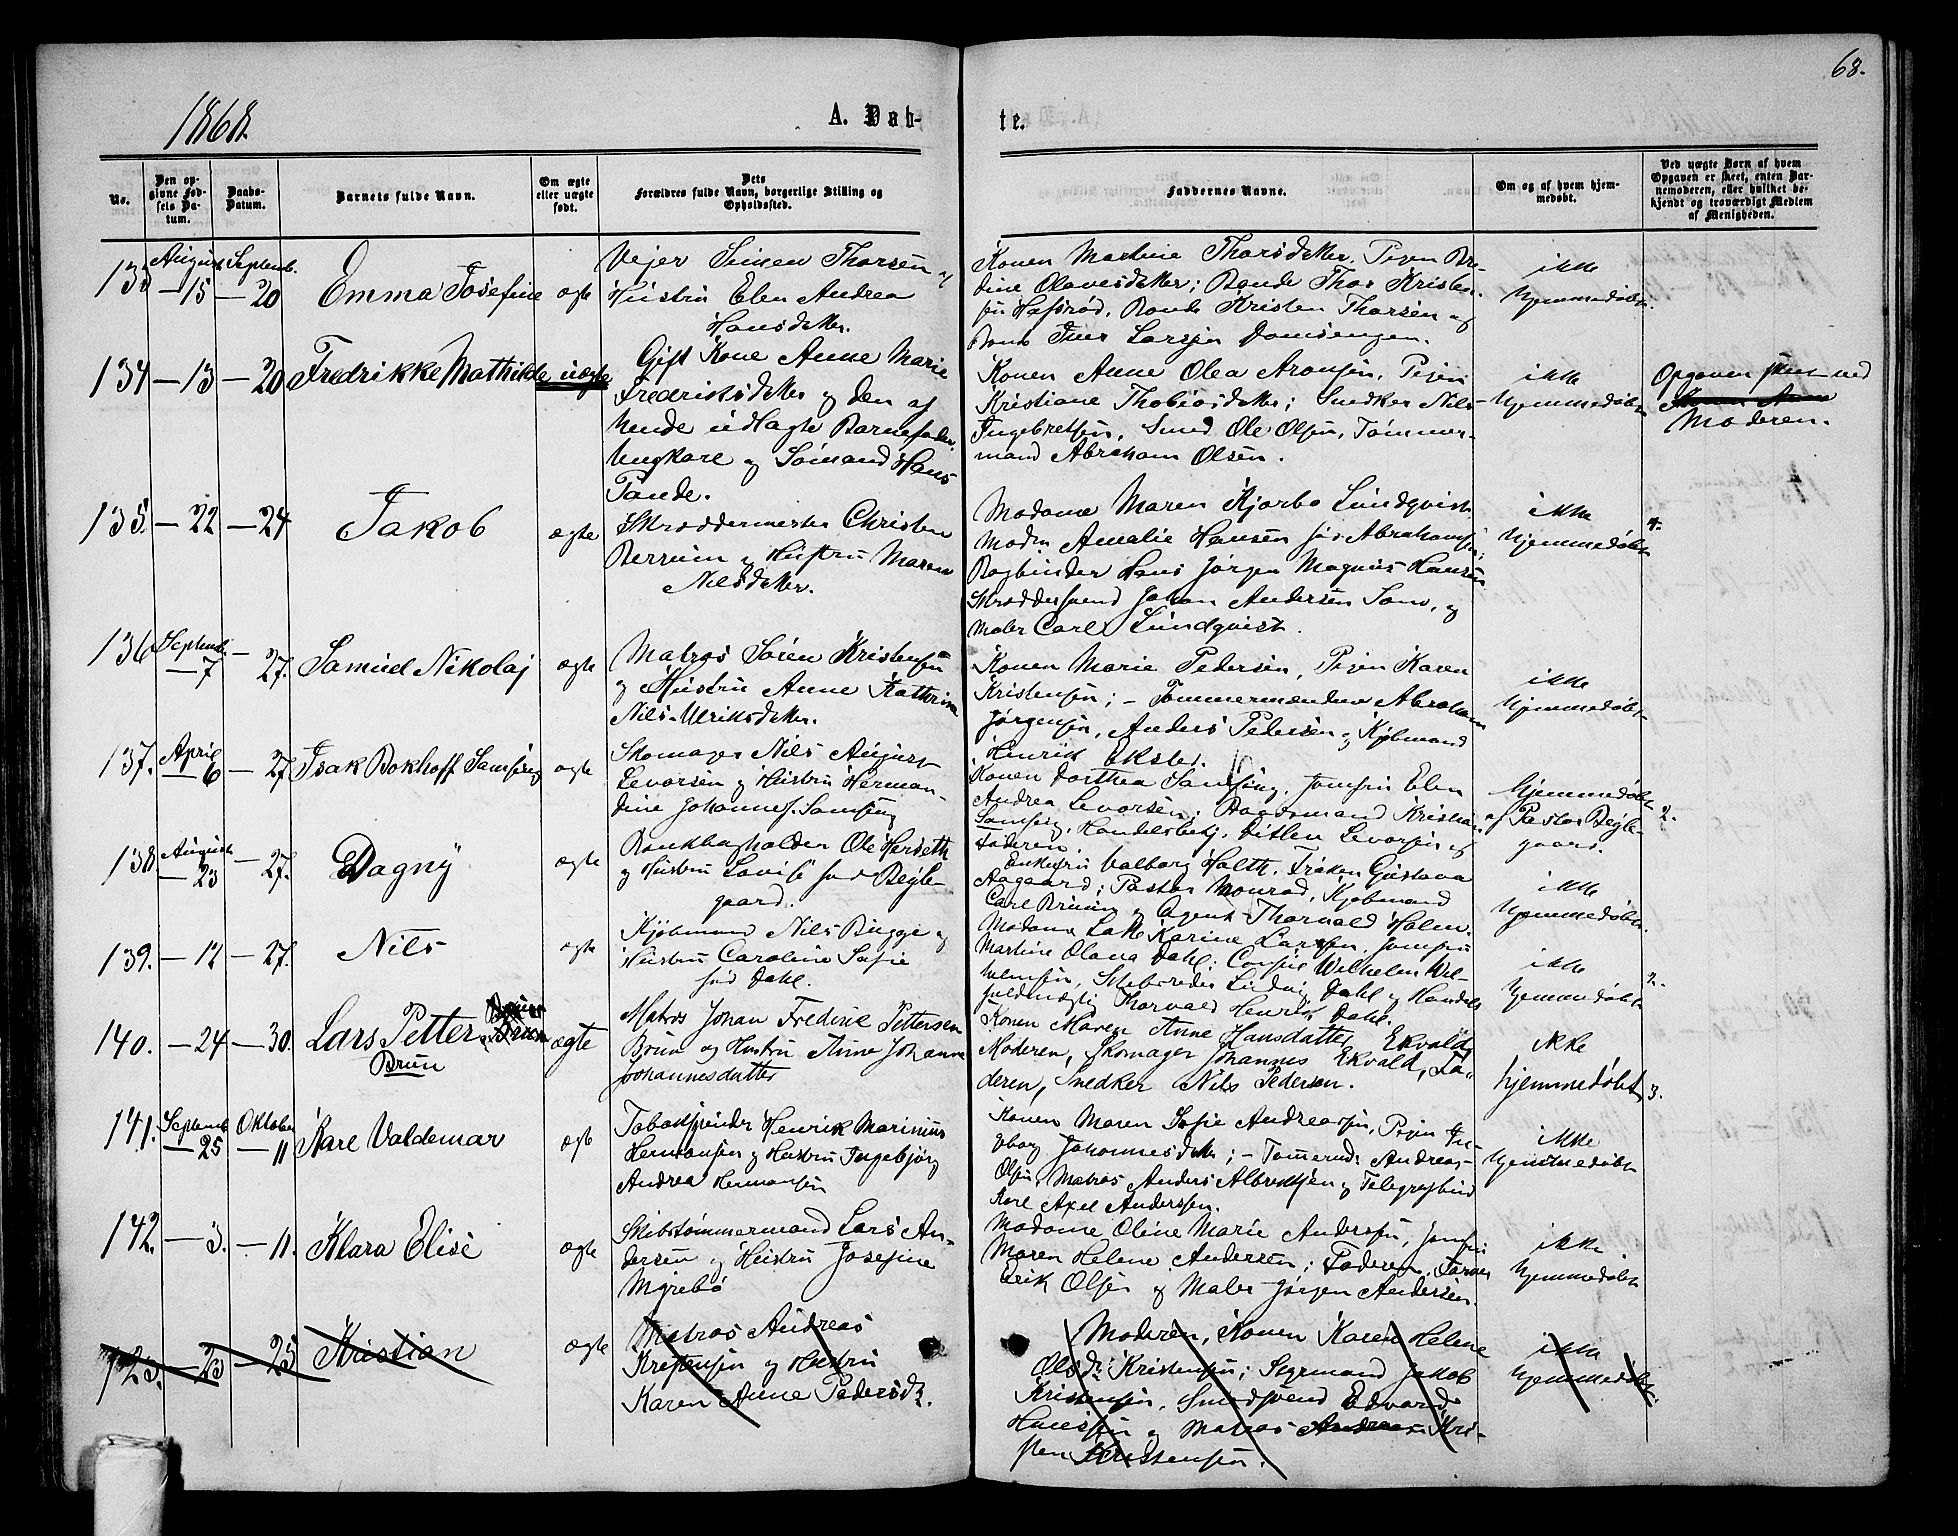 68.
1868.
A. Døb-
te.
No.
Den op-
givne Fød-
sels Da-
tum.
Daabs-
Datum.
Barnets fulde Navn.
Om ægte
eller uægte
født.
Dets
Forældres fulde Navn, borgerlige Stilling og
Opholdssted.
Faddernes Navne.
Om og af hvem hjem-
medøbt.
Ved uægte Børn af hvem
Opgaven er skeet, enten Bar-
nemoderen, eller hvilket be-
kjendt og troværdigt Medlem
af Menigheden.
133 August 15 Septemb. 20 Emma Josefine ægte
Vejer Simen Thorsen og
Hustru Elen Andrea
Hansdatter.
Konen Martine Thorsdatter, Pigen
dine Olavesdatter; Bonde Thor Kristen-
sen Hafsrød, Bonde Kristen Thorsen og
Bonde Iver Larsen
ikke
hjemmedøbt.
134 — 13 — 20 Fredrikke Mathilde uægte
Gift Kone Anne Marie
Fredriksdatter og den af
hende udlagte Barnefader
Ungkarl og Sømand Hans
Tande.
Konen Anne Olea Aronsen, Pigen
Kristiane Thobiasdatter; Snedker Nils
Ingebretsen, Smed Ole Olsen, Tømmer-
mand Abraham Olsen.
ikke
hjemmedøbt
Opgaven skeet ved
Moderen.
135. — 22 — 24 Jakob ægte
Skræddermester Christen
Berrum og Hustru Maren
Nilsdatter.
Madame Maren Kjørbo Lundqvist
Madm Amalie Hansen født Abrahamsen;
Bogbinder Hans Jørgen Magnus Hansen
Skræddersvend Johan Andersen, og
Maler Carl Lundqvist.
ikke
hjemmedøbt
4.
136 Septemb. — 7 — 27. Samuel Nikolaj ægte
Matros Søren Kristensen
og Hustru Anne Kathrine
Nils-Ulriksdatter.
Konen Marie Pedersen, Pigen Karen
Kristensen; — Tømmermændene Abraham
Jørgensen, Anders Pedersen og Kjøbmand
Henrik Eksted.
ikke
hjemmedøbt
137. April — 6 — 27 Isak Bokhoff Samsing ægte
Skomager Nils August
Levorsen og Hustru Herman-
dine Johannes. Samsing
Konen Dorthea Samsing, Jomfru Elen
Andrea Levorsen; Kristian
Samsing, Handelsbetj. Ditlev Levorsen og
Faderen.
hjemmedøbt
af Pastor Bugle-
gaard.
2.
138. August — 23 — 27. Dagny ægte
Bankbogholder Ole Herseth
og Hustru Lovise født Bugle-
gaard.
Enkefru Valborg Holth, Frøken Gustava
Aagaard; Pastor Monrad, Kjøbmand
Carl Bruun og Agent Thorvald Holm.
ikke
hjemmedøbt.
139. — 12 — 27. Nils ægte
Kjøbmand Nils Bugge og
Hustru Caroline Sofie
født Dahl.
Madame Karine Larsen, Jomfru
Martine Olava Dahl; Consul Wilhelm Wil-
helmsen, Skibsreder Ludvig Dahl og Handels
fuldmægtig Thorvald Henrik Dahl.
ikke
hjemmedøbt
2.
140. — 24 — 30. Lars Petter
Brun
ægte
Matros Johan Fredine Pettersen
Brun og Hustru Anne Johanne
Johannesdatter
Konen Maren Anne Hansdatter Ekvald,
Moderen, Skomager Johannes Ekvald, Fa-
deren, Snedker Nils Pedersen.
ikke
hjemmedøbt
3.
141. Septemb — 25 Oktober — 11 Karl Valdemar ægte
Tobakspinder Henrik Marinius
Hermansen og Hustru Ingebjørg
Andrea Hermansen
Konen Maren Sofie Andreassen, Pigen In-
geborg Johannesdatter; — Tømermd. Andreas
Olsen, Matros Anders Albrektsen og Telegrafbud
Karl Axel Anderssen.
ikke
hjemmedøbt
142. — 3. — 11. Klara Elise ægte
Skibstømmermand Lars An-
dersen og Hustru Josefine
Myrebö
Madame Oline Marie Anderssen, Jomfru
Maren Helene Andersen; Faderen, Farver
Erik Olsen og Maler Jørgen Andersen.
ikke
hjemmedøbt
123. — 23 — 25 Kristian ægte
Matros Andreas
Kristensen og Hustru
Karen Anne Pedersdt.
Moderen, Konen Karen Helene
Olsdt. Kristensen; Styrmand Jakob
Kristensen, Smedsvend Edvard
Hansen og Matros Andreas Kri-
sten Kristensen.
ikke
hjemmedøbt.